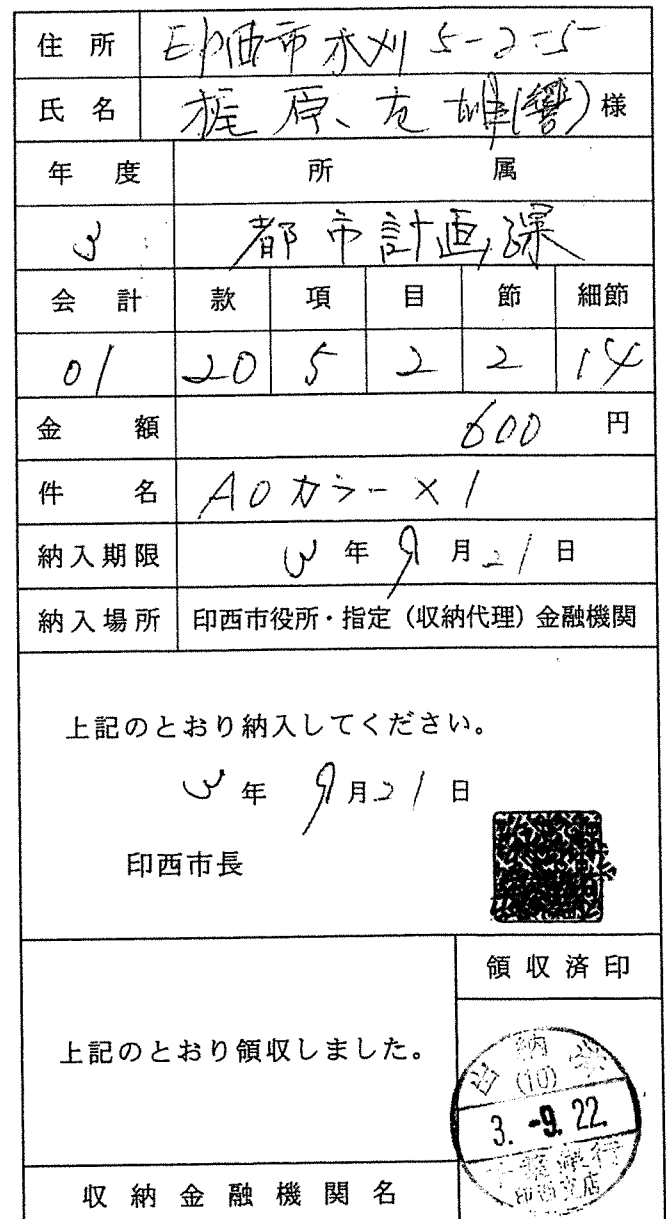 住所 印西市木刈 5-2-5
氏名 梶原 友雄(響) 様
年度 所属
3 都市計画課
会計 款 項 目 節 細節
01 20 5 2 2 14
金額 600 円
件名 A0カラー×1
納入期限 3年9月21日
納入場所 印西市役所・指定(収納代理)金融機関
上記のとおり納入してください。
3年 9月21日
印西市長
領収済印
上記のとおり領収しました。
出納
(10)
3. -9. 22.
千葉銀行
印西支店
収納金融機関名